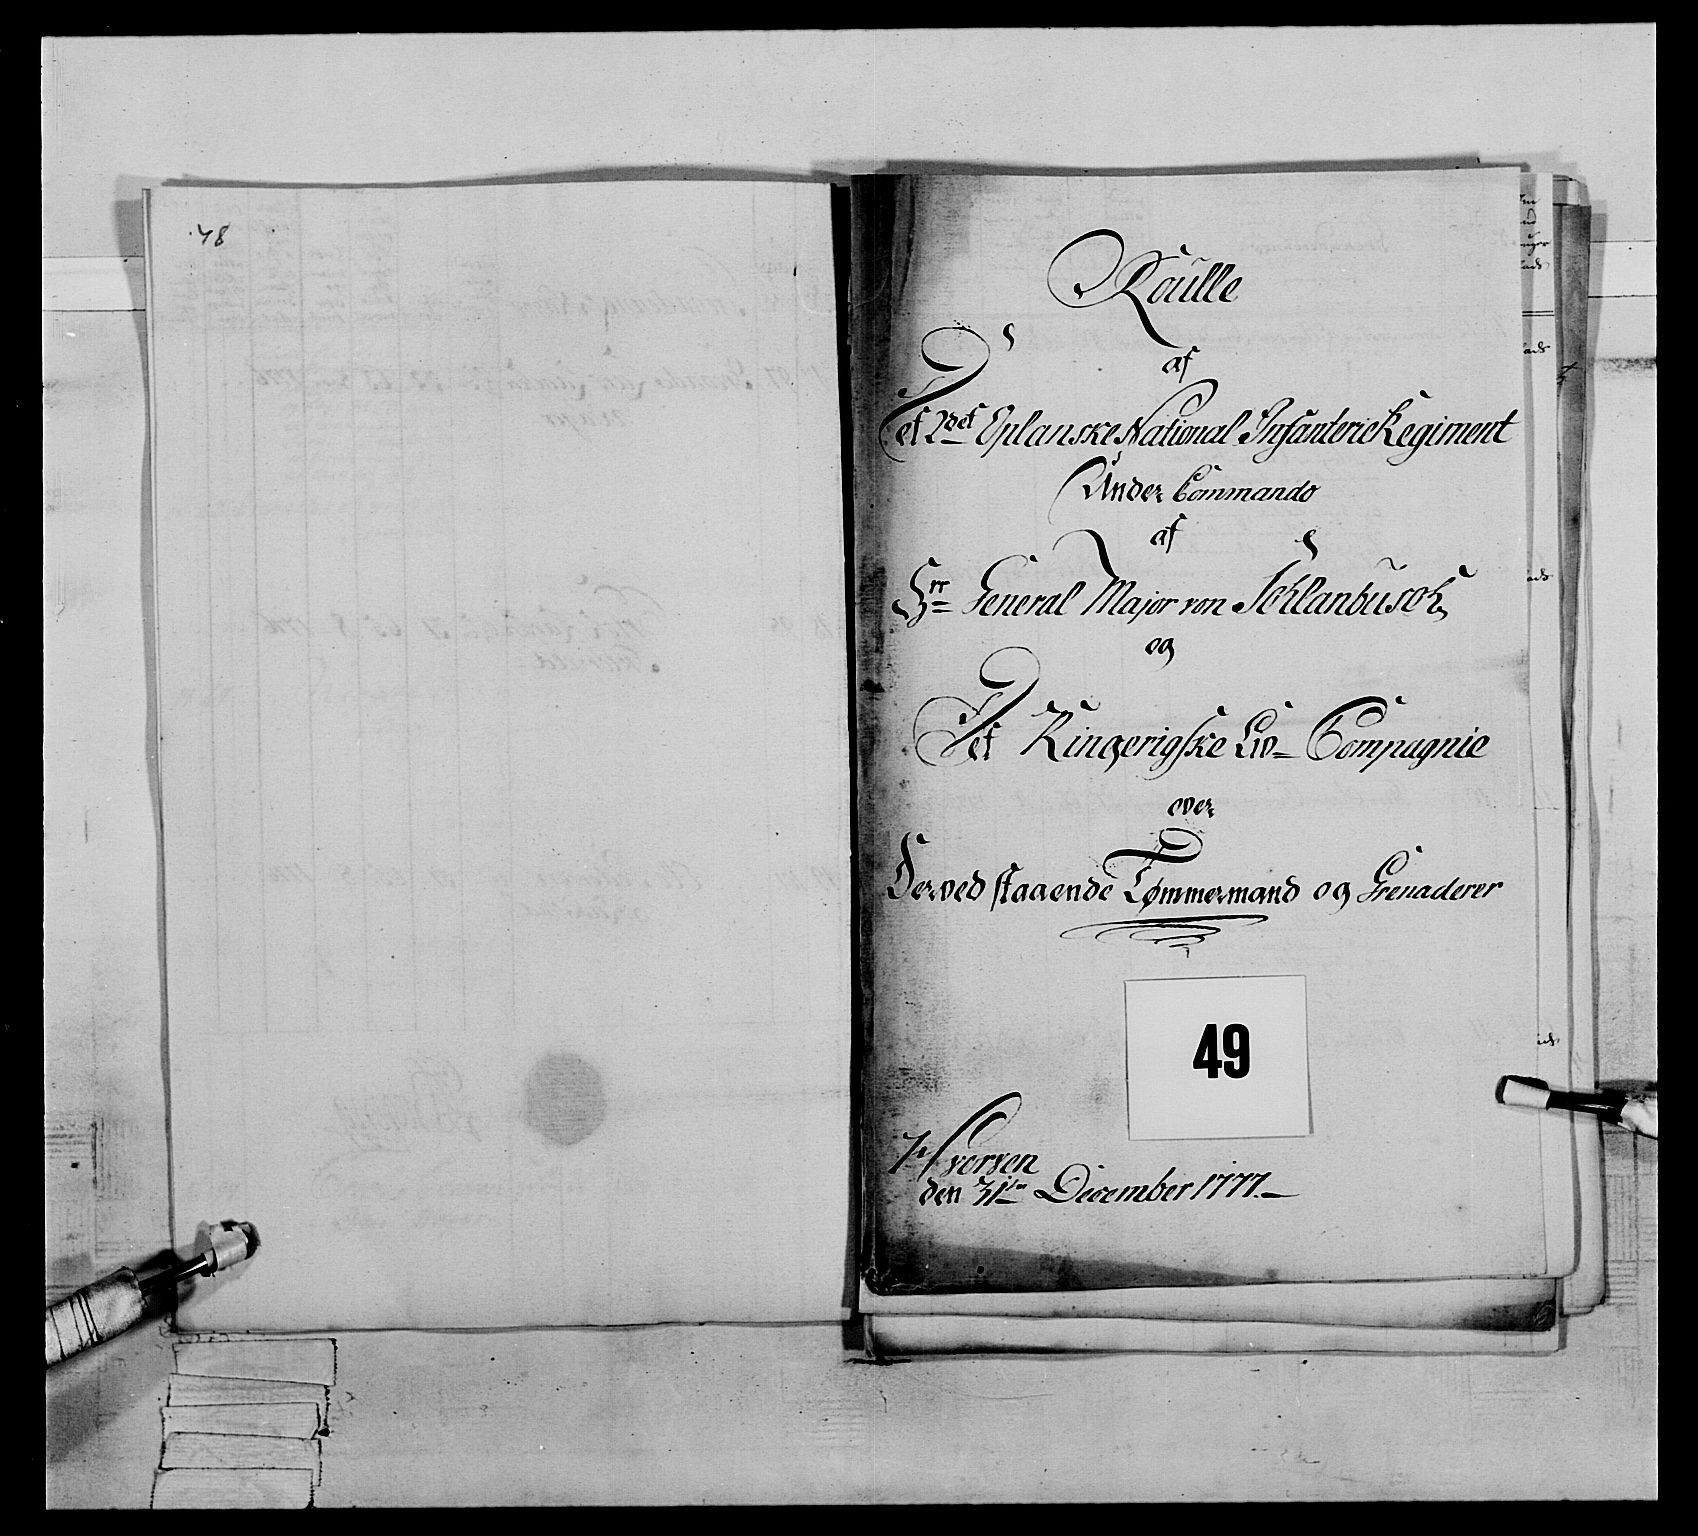 48
Roulle
af
Det 2det Oplanske National Infanterie Regiment
Under Commando
af
Hrr General Major von Schlanbusch
og
Det Ringerigske Liv-Compagnie
over
Derved staaende Tømmermænd og Grenaderer
49
Hverven
den 31te December 1777.